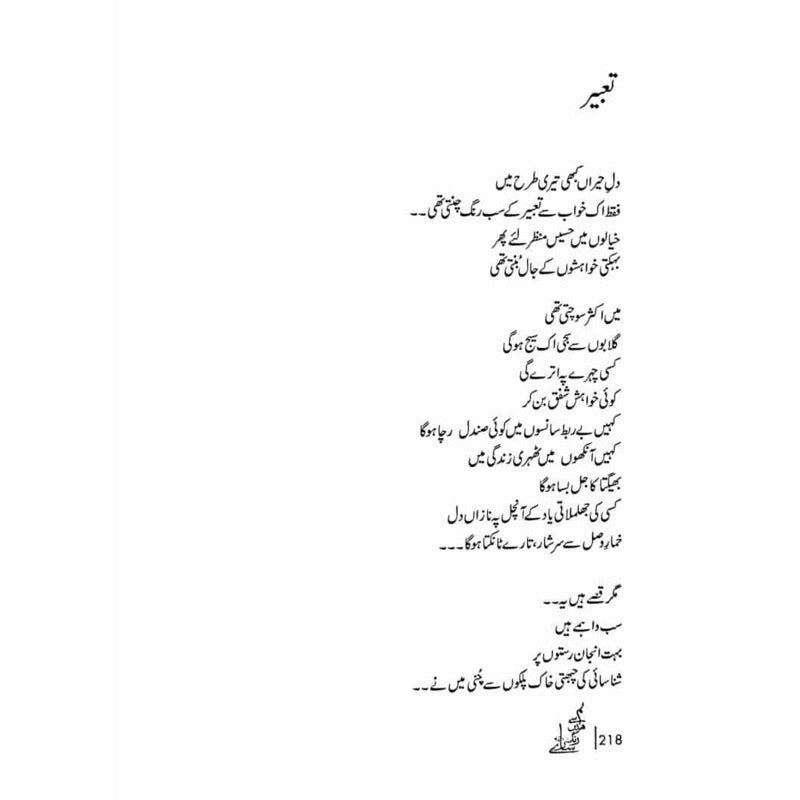 تعبیر
دلِ حیراں کبھی تیری طرح میں
فقط اک خواب سے تعبیر کے سب رنگ چنتی تھی ۔۔
خیالوں میں حسیں منظر لئے پھر
بہکتی خواہشوں کے جال بُنتی تھی
میں اکثر سوچتی تھی
گلابوں سے سجی اک سیج ہوگی
کسی چہرے پہ اترے گی
کوئی خواہش شفق بن کر
کہیں بے ربط سانسوں میں کوئی صندل رچا ہوگا
کہیں آنکھوں میں ٹھہری زندگی میں
بھیگتا کاجل بسا ہوگا
کسی کی جھلملاتی یاد کے آنچل پہ نازاں دل
خمارِ وصل سے سرشار، تارے ٹانکتا ہوگا ۔۔۔
مگر قصے ہیں یہ ۔۔
سب واہمے ہیں
بہت انجان رستوں پر
شناسائی کی چبھتی خاک پلکوں سے چُنی میں نے ۔۔
218